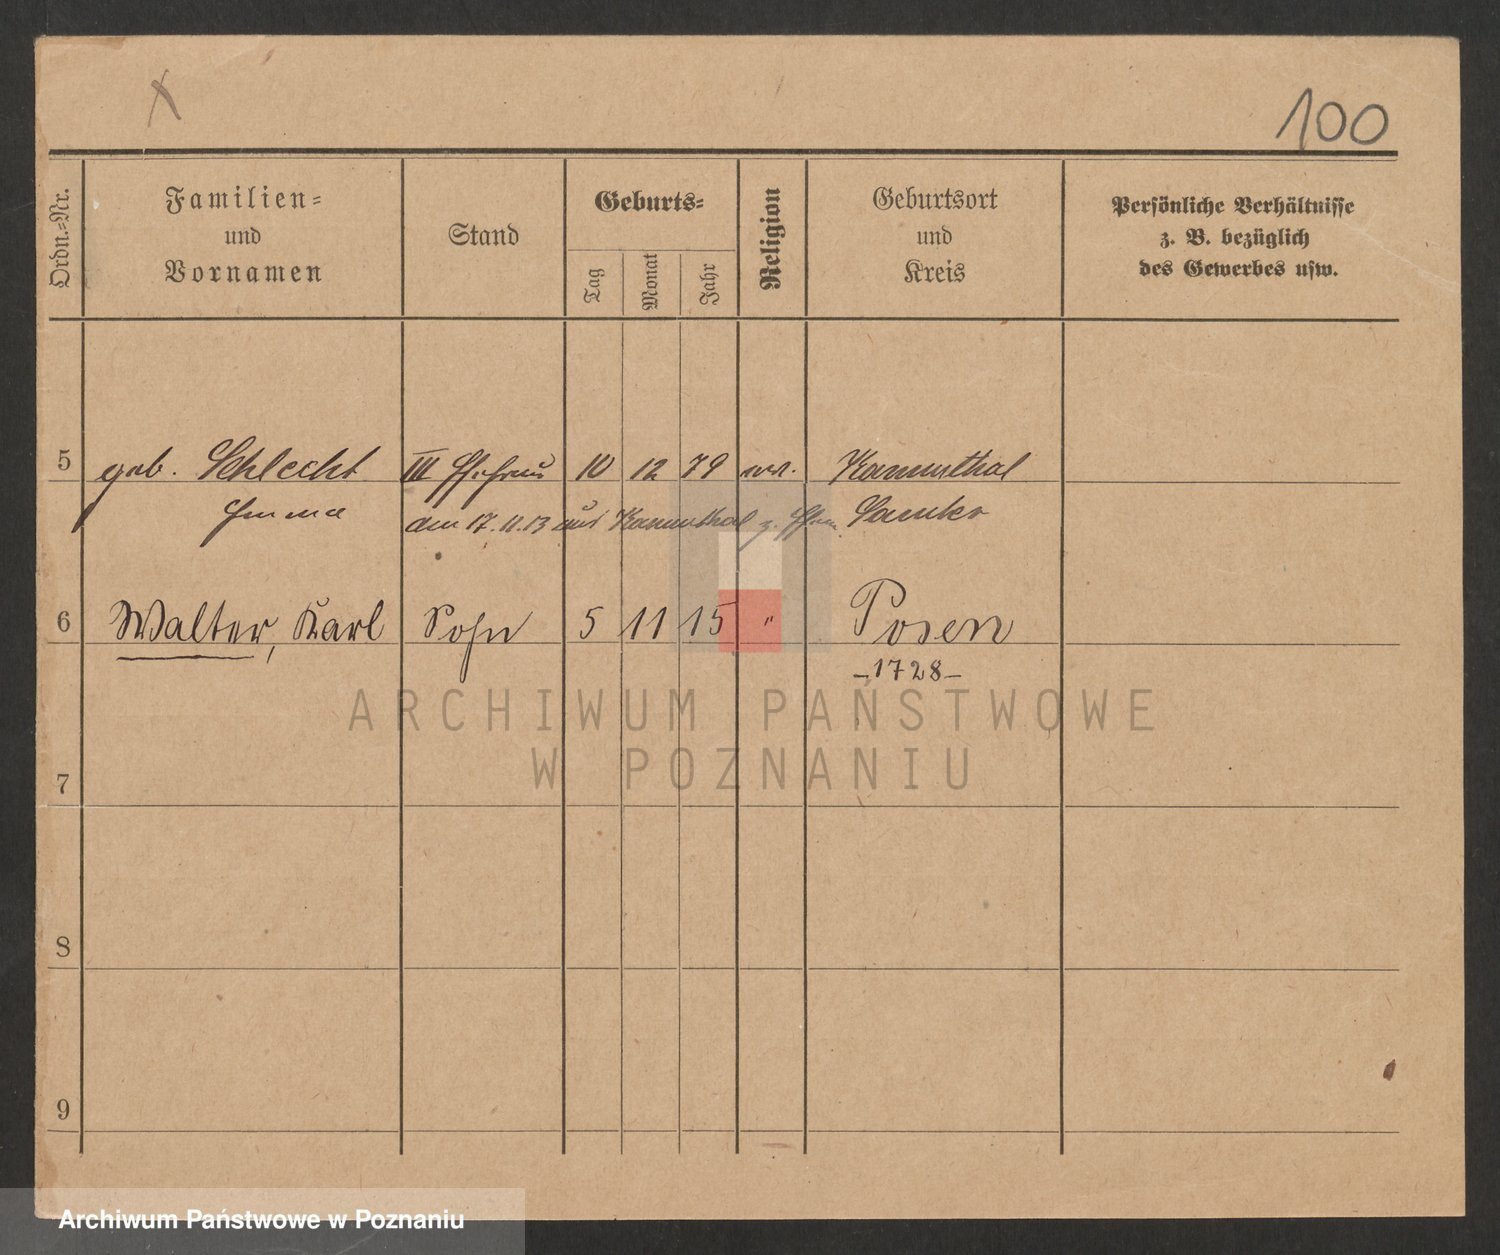 100
Ordn.=Nr.
Familien=
und
Vornamen
Stand
Geburts=
Tag
Monat
Jahr
Religion
Geburtsort
und
Kreis
Persönliche Verhältnisse
z. B. bezüglich
des Gewerbes usw.
5 geb. Schlecht III Ehefrau 10 12 79 Kammthal
Emma am 17.11.13 aus Kammthal z. Samter
6 Walter, Karl Sohn 5 11 15 " Posen
-1728-
7
8
9
ARCHIWUM PAŃSTWOWE
W POZNANIU
Archiwum Państwowe w Poznaniu